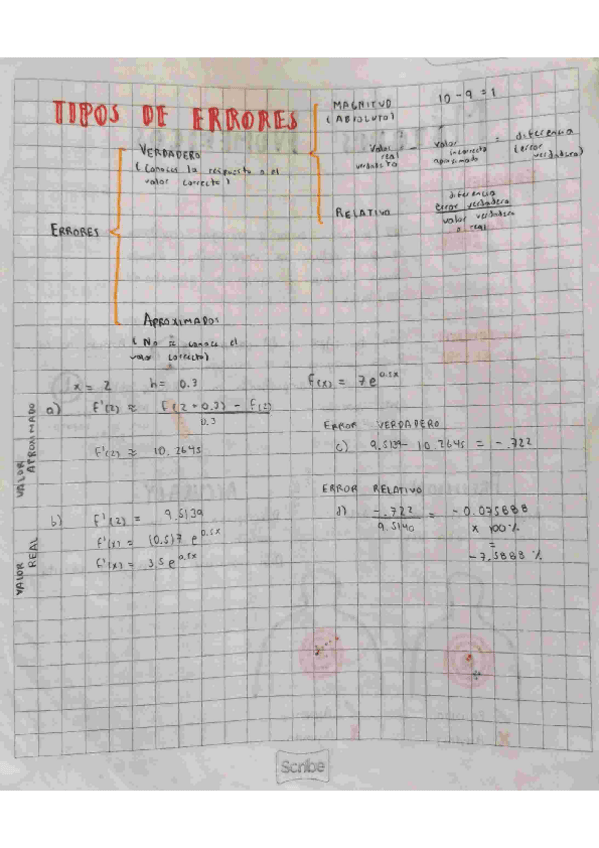 TIPOS DE ERRORES
MAGNITUD
(ABSOLUTO)
10 - 9 = 1
VERDADERO
(Conoces la respuesta o el
valor correcto)
valor real verdadero - valor incorrecto aproximado = diferencia (error verdadero)
ERRORES
RELATIVO
diferencia
error verdadero
valor verdadero
o real
APROXIMADOS
(No se conoce el
valor correcto)
x = 2 h = 0.3 f(x) = 7e^0.5x
VALOR APROXIMADO
a) F'(2) ≈ F(2 + 0.3) - f(2)
0.3
F'(2) ≈ 10.2645
ERROR VERDADERO
c) 9.5139 - 10.2645 = -.722
ERROR RELATIVO
d) -.722 = -0.075888
9.5140 x 100%
=
-7.5888 %
VALOR REAL
b) F'(2) = 9.5139
F'(x) = (0.5)7 e^0.5x
F'(x) = 3.5 e^0.5x
Scribe